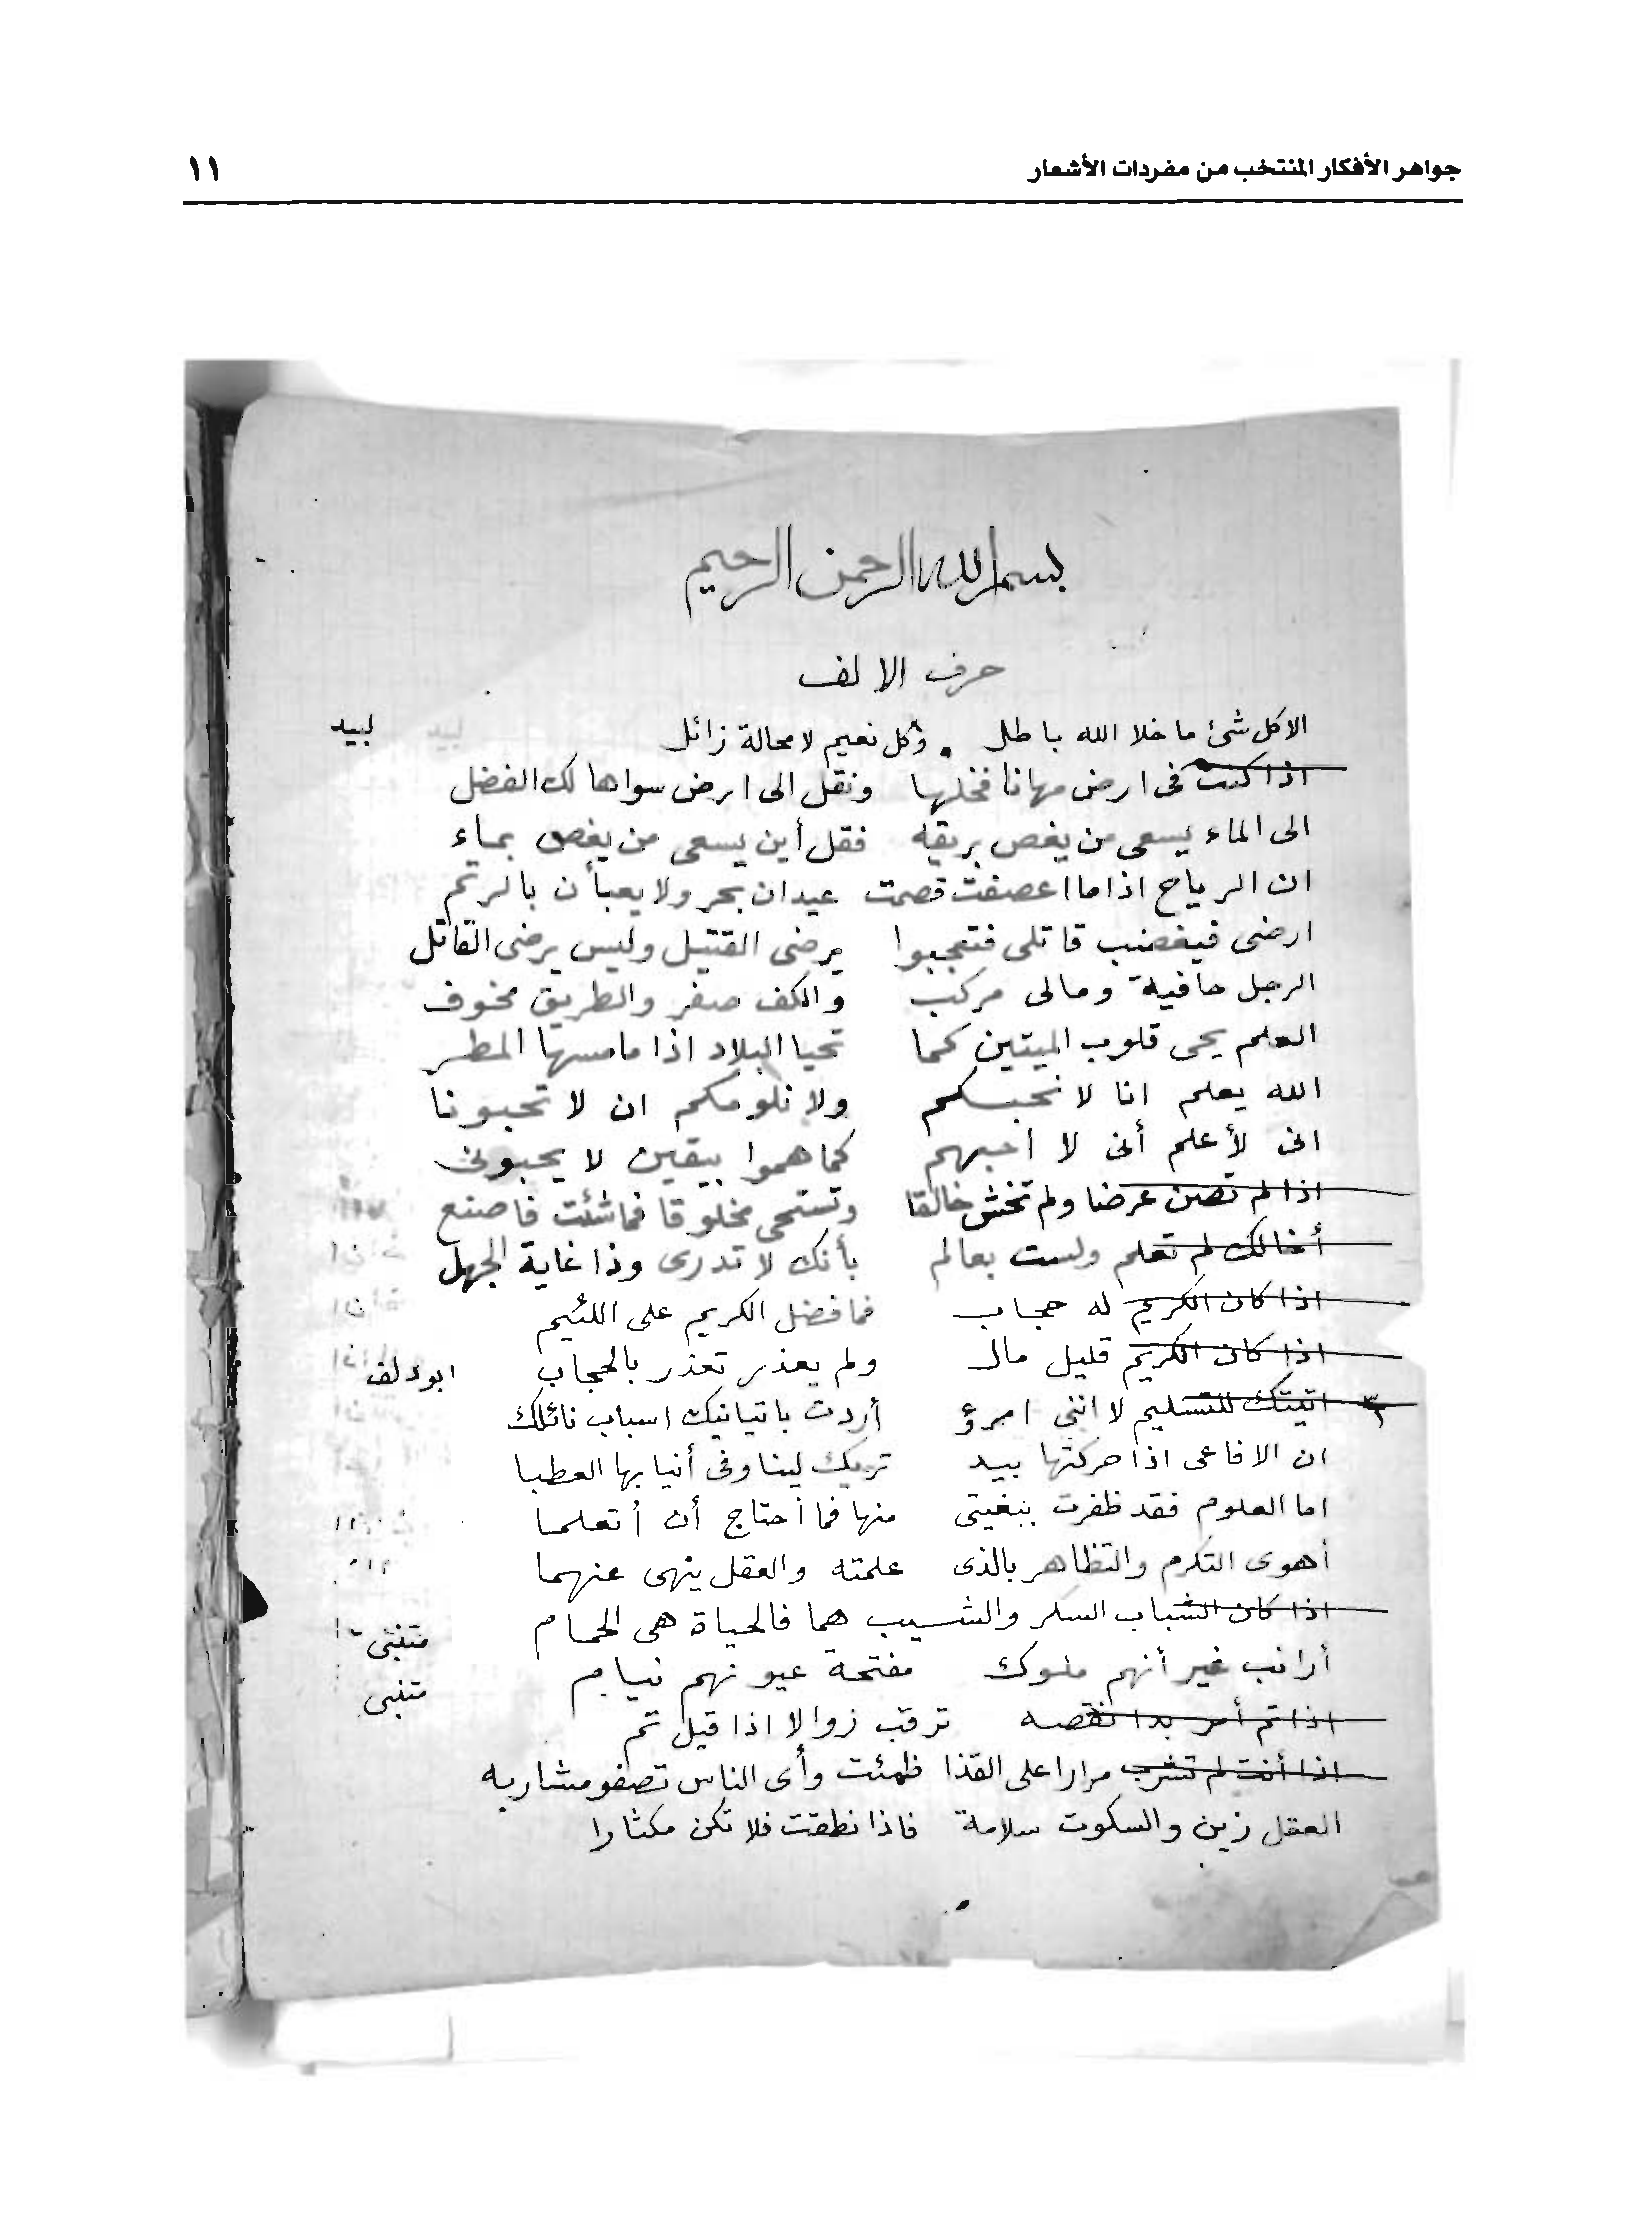 جواهر الأفكار المنتخب من مفردات الأشعار ١١
بسم الله الرحمن الرحيم
حرف الالف
الا كل شئ ما خلا الله باطل . وكل نعيم لا محالة زائل لبيد
اذا كنت فى ارض مهانا فخلها ونقل الى ارض سواها لك الفضل
الى الماء يسعى من يغص بريقه فقل أين يسعى من يغص بماء
ان الرياح اذا ما اعصفت قصمت عيدان بحر ولا يعبأن بالرتم
ارضى فيغضب قاتلى فتعجبوا يرضى القتيل وليس يرضى القاتل
الرجل حافية ومالى مركب والكف صفر والطريق مخوف
العلم يحى قلوب الميتين كما تحيا البلاد اذا ما مسها المطر
الله يعلم انا لا نحبكم ولا نلومكم ان لا تحبونا
انى لأعلم أنى لا احبهم كما هموا بيقين لا يحبونى
اذا لم تصن عرضا ولم تخش خالقا وتستحى مخلوقا فما شئت فاصنع
أخالك لم تعلم ولست بعالم بأنك لا تدرى وذا غاية الجهل
اذا كان الكريم له حجاب فما فضل الكريم على اللئيم
اذا كان الكريم قليل مال ولم يعذر تعذر بالحجاب ابو دلف
٣ اتيتك للتسليم لا اننى امرؤ أردت باتيانيك اسباب نائلك
ان الافاعى اذا حركتها بيد تريك لينا وفى أنيابها العطبا
اما العلوم فقد ظفرت ببغيتى منها فما أحتاج أن أتعلما
أهوى التكرم والتظاهر بالذى علمته والعقل ينهى عنهما
اذا كان الشباب السكر والشيب هما فالحياة هى الحمام متنبى
أرانب غير أنهم ملوك مفتحة عيونهم نيام متنبى
اذا تم أمر بدا نقصه ترقب زوالا اذا قيل تم
اذا أنت لم تشرب مرارا على القذا ظمئت وأى الناس تصفو مشاربه
العقل زين والسكوت سلامة فاذا نطقت فلا تكن مكثارا